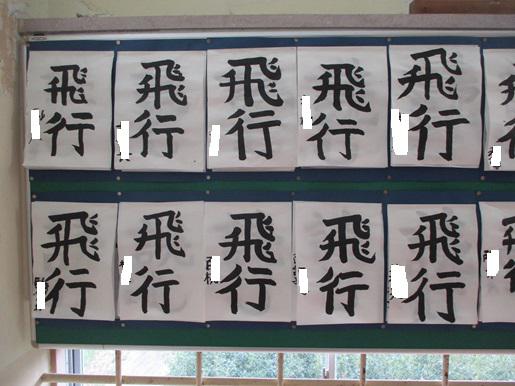 飛行
飛行
飛行
飛行
飛行
飛行
飛行
飛行
飛行
飛行